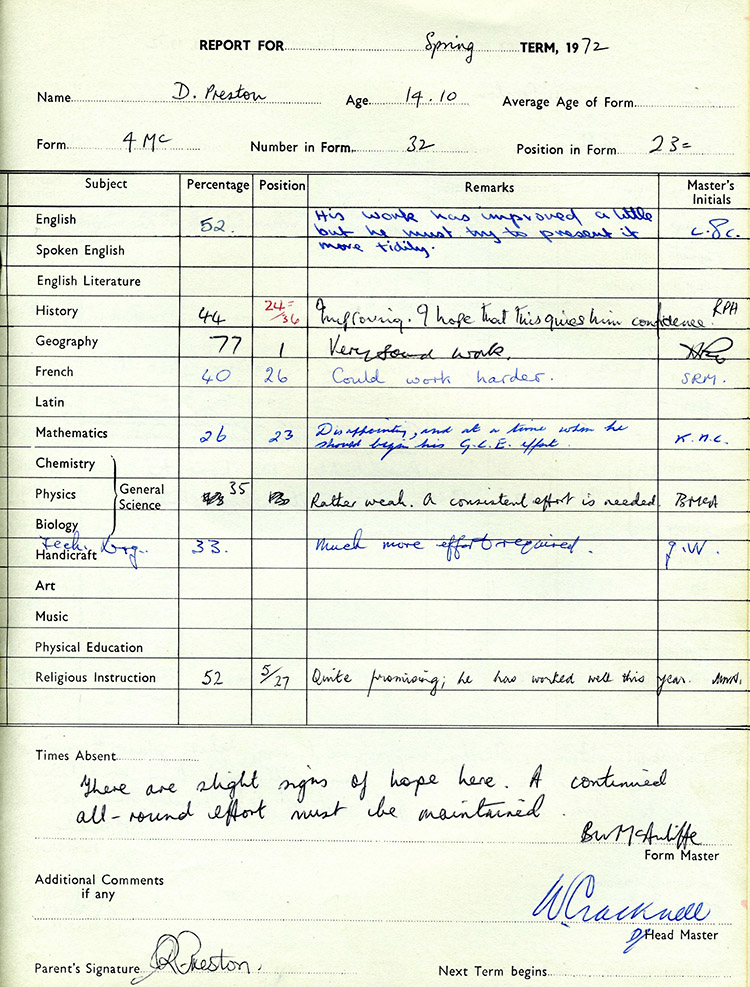 REPORT FOR Spring TERM, 1972
Name D. Preston Age 14.10 Average Age of Form
Form 4 Mc Number in Form 32 Position in Form 23=
Subject Percentage Position Remarks Master's Initials
English 52. His work has improved a little
but he must try to present it
more tidily.
Spoken English
English Literature
History 44 24=/36 Improving. I hope that this gives him confidence. RPH
Geography 77 1 Very sound work.
French 40 26 Could work harder. SRM.
Latin
Mathematics 26 23 Disappointing, and at a time when he
should begin his G.C.E. effort. K.A.C.
Chemistry
Physics General Science 35 Rather weak. A consistent effort is needed. BMcA
Biology
Tech. Drg.
Handicraft 33. Much more effort required. J.W.
Art
Music
Physical Education
Religious Instruction 52 5/27 Quite promising; he has worked well this year.
Times Absent
There are slight signs of hope here. A continued
all-round effort must be maintained.
BW McAuliffe
Form Master
Additional Comments
if any
W. Cracknell
Dy Head Master
Parent's Signature Preston. Next Term begins